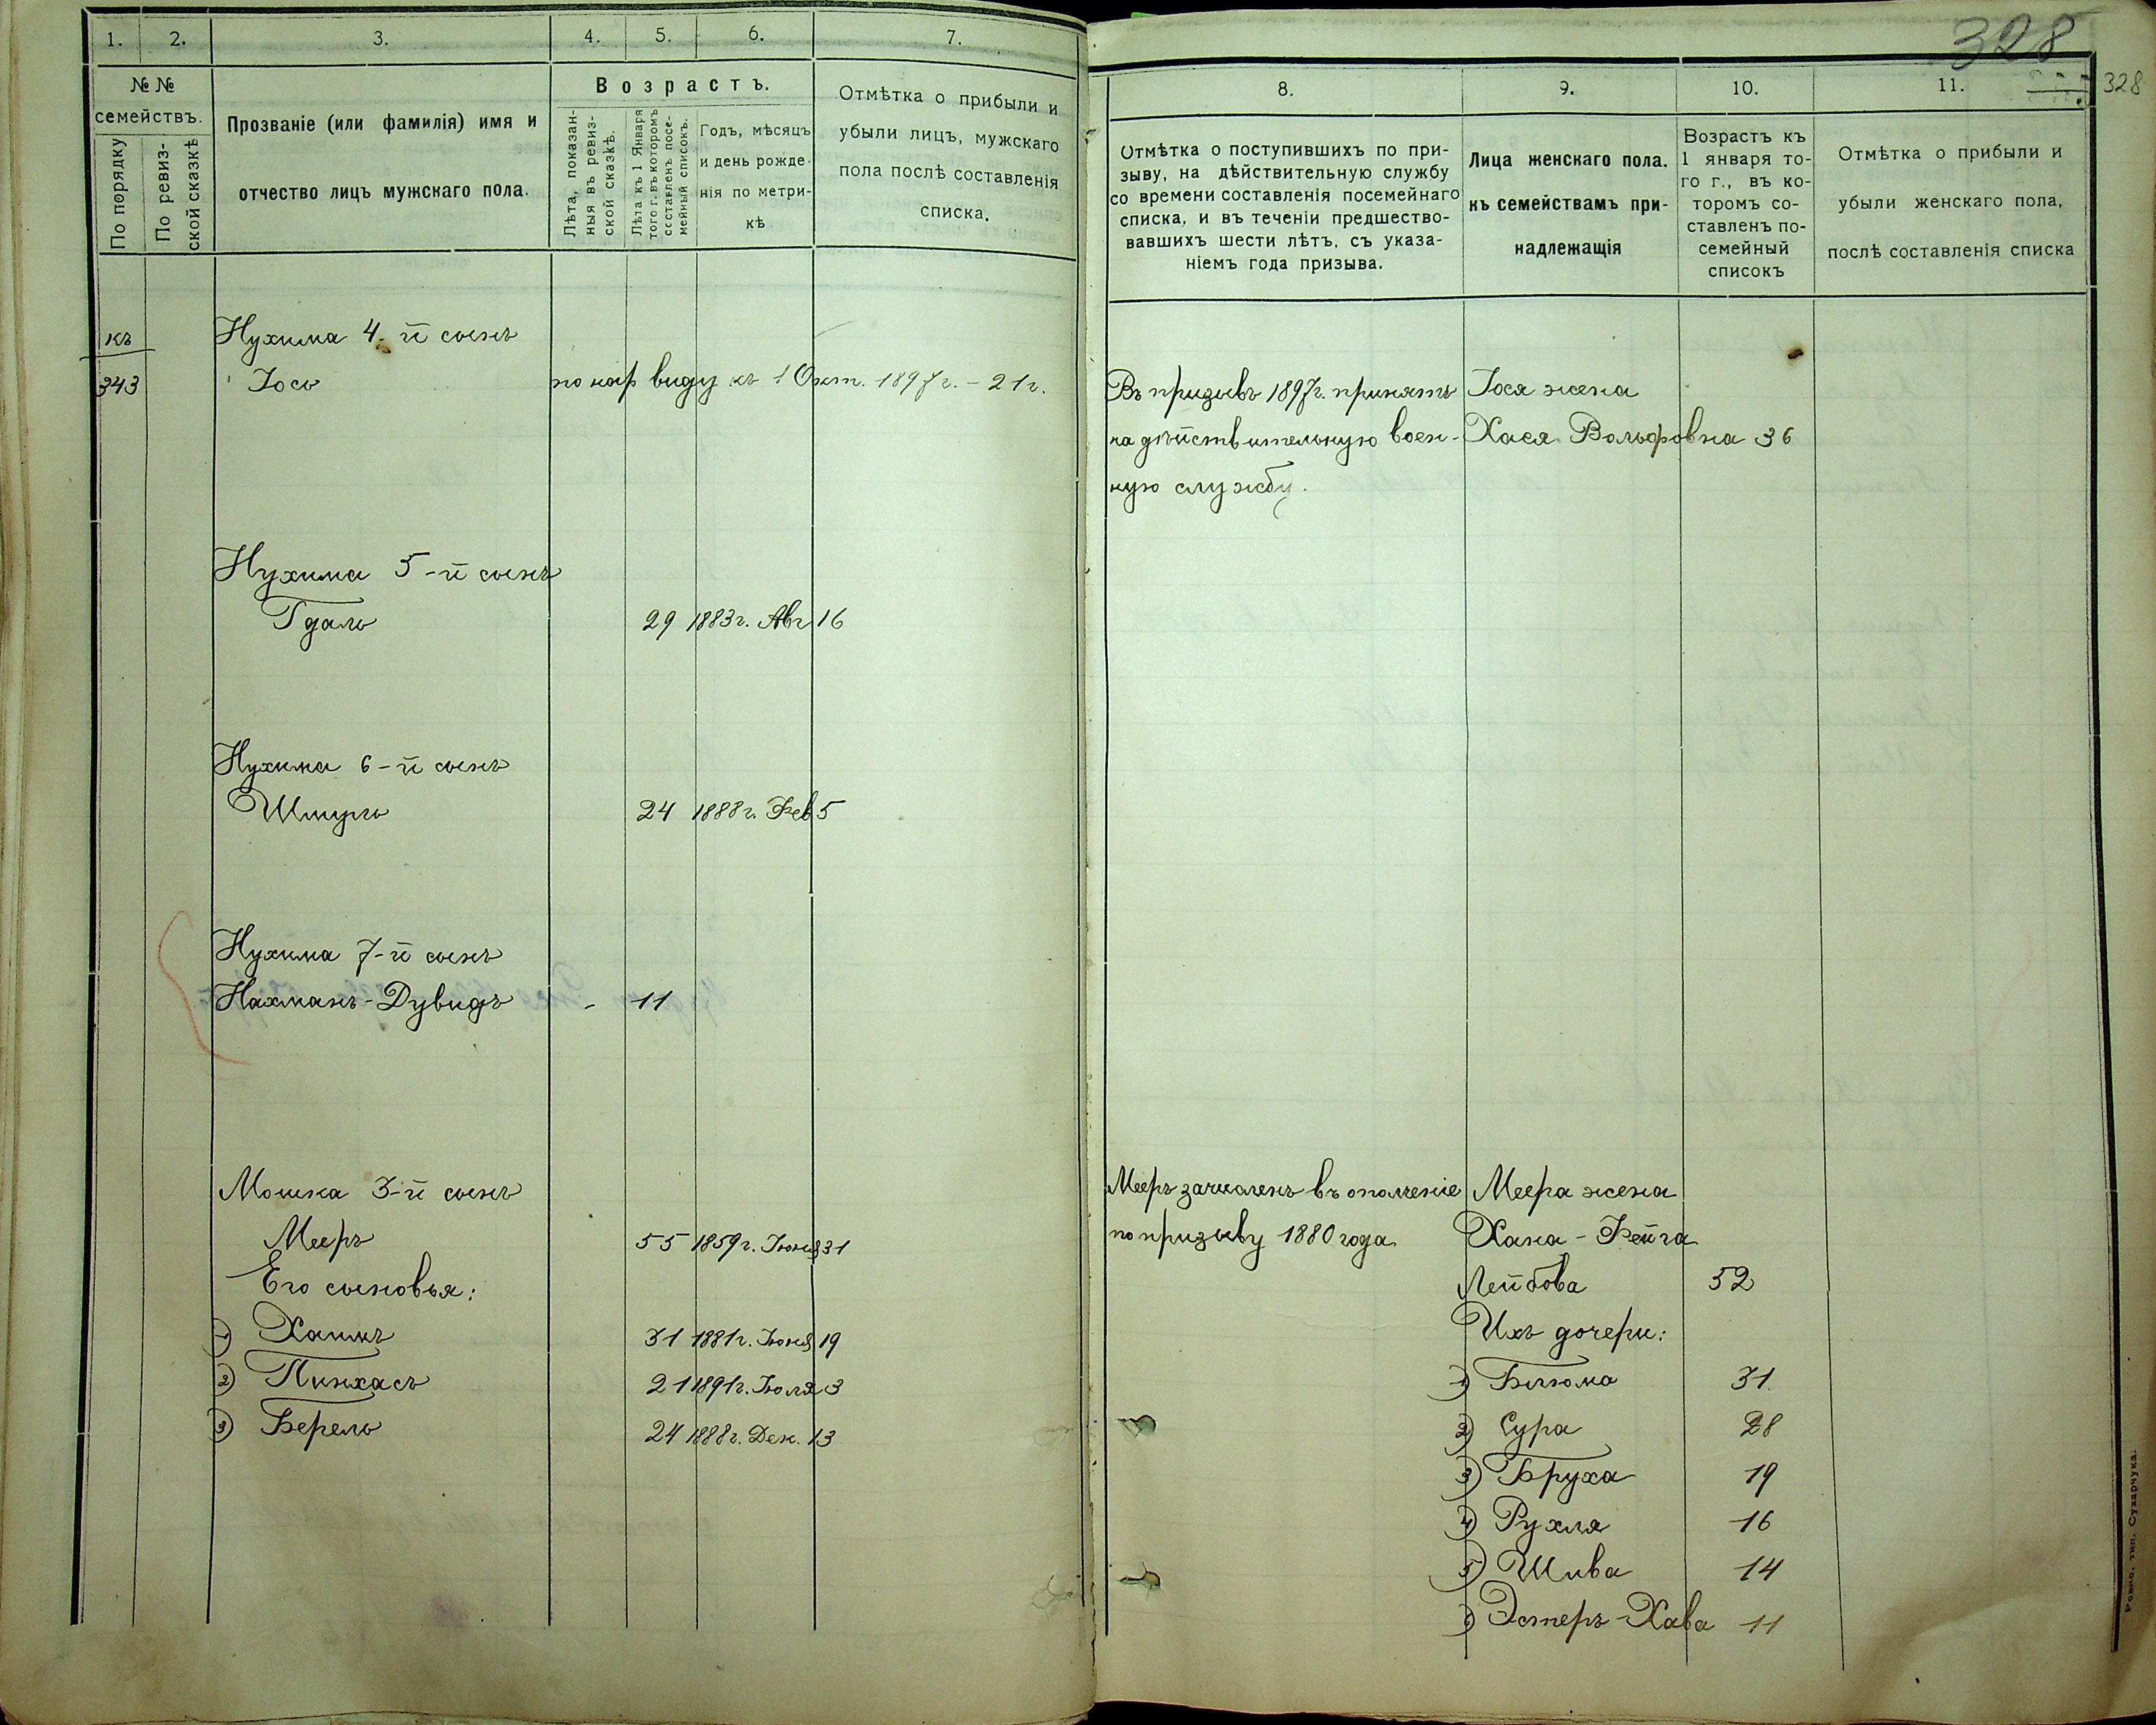 1. 2. 3. 4. 5. 6. 7.
№ №
семействъ.
По порядку
По ревиз-
ской сказкѣ
Прозваніе (или фамилія) имя и
отчество лицъ мужскаго пола.
Возрастъ.
Лѣта, показан-
ныя въ ревиз-
ской сказкѣ.
Лѣта къ 1 Января
того г. въ которомъ
составленъ посе-
мейный списокъ.
Годъ, мѣсяцъ
и день рожде-
нія по метри-
кѣ
Отмѣтка о прибыли и
убыли лицъ, мужскаго
пола послѣ составленія
списка.
къ
343
Нухима 4-й сынъ
Іось по нар виду къ 1 Окт. 1897 г. - 21 г.
Нухима 5-й сынъ
Гдаль 29 1883 г. Авг 16
Нухима 6-й сынъ
Шмуль 24 1888 г. Фев 5
Нухима 7-й сынъ
Нахманъ-Дувидъ - 11
Мошка 3-й сынъ
Мееръ 55 1859 г. Іюня 31
Его сыновья:
1) Хаимъ 31 1881 г. Іюня 19
2) Пинхасъ 21 1891 г. Іюля 3
3) Берель 24 1888 г. Дек. 13
328
328
8. 9. 10. 11.
Отмѣтка о поступившихъ по при-
зыву, на дѣйствительную службу
со времени составленія посемейнаго
списка, и въ теченіи предшество-
вавшихъ шести лѣтъ, съ указа-
ніемъ года призыва.
Лица женскаго пола.
къ семействамъ при-
надлежащія
Возрастъ къ
1 января то-
го г., въ ко-
торомъ со-
ставленъ по-
семейный
списокъ
Отмѣтка о прибыли и
убыли женскаго пола,
послѣ составленія списка
Въ призывъ 1897 г. принятъ Іося жена
на дѣйствительную воен- Хася Вольфовна 36
ную службу.
Мееръ зачисленъ въ ополченіе Меера жена
по призыву 1880 года Хана-Фейга
Лейбова 52
Ихъ дочери:
1) Блюма 31
2) Сура 28
3) Бруха 19
4) Рухля 16
5) Шива 14
6) Эстеръ-Хава 11
Ровно, тип. Сухарчука.